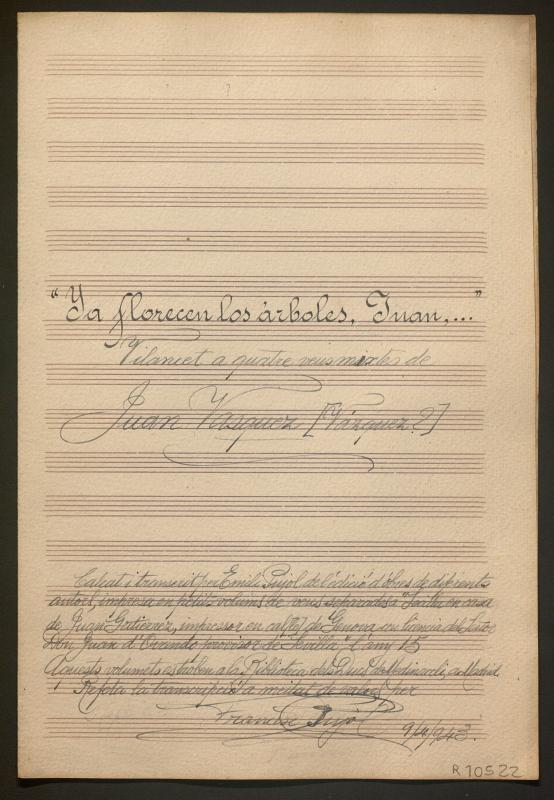 "Ya florecen los árboles, Juan,..."
Vilancet a quatre veus mixtes de
Juan Vasquez [Vázquez?]
Calcat i transcrit per Emili Pujol de l'edició d'obres de diferents
autors, impresa en petits volums de veus separades "Sevilla en casa
de Juan Gutierrez, impressor en cal[le] de Genova, con licencia del
Don Juan d'Ovando provisor de Sevilla", l'any 15
Aquests volumets es troben a la Biblioteca del Duc de Medinaceli, a Madrid.
Refeta la transcripció a meitat de valors per
Francesc Pujol
9/4/943.
R. 10522